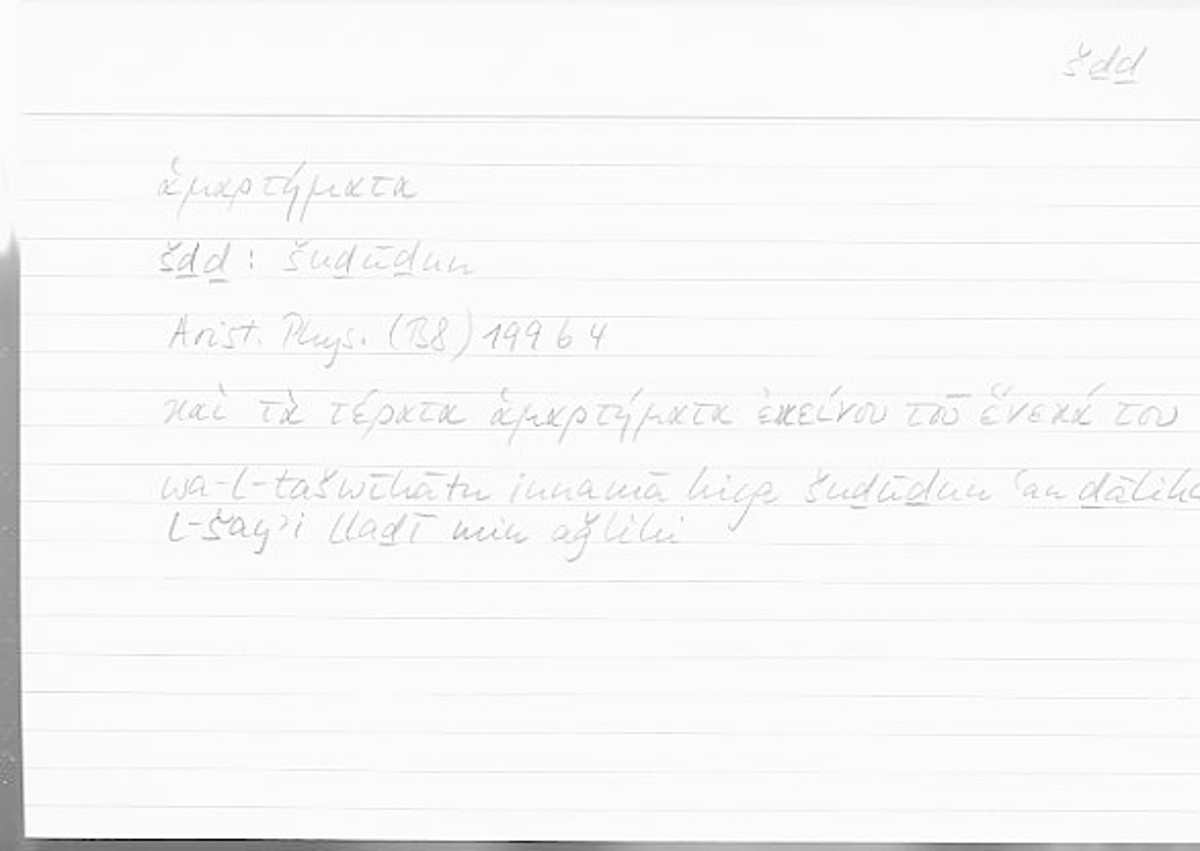 šḏḏ
ἁμαρτήματα
šḏḏ : šuḏūḏun
Arist. Phys. (B8) 199 b 4
καὶ τὰ τέρατα ἁμαρτήματα ἐκείνου τοῦ ἕνεκά του
wa-l-tašwīhātu innamā hiya šuḏūḏun ʿan ḏālika
l-šayʾi llaḏī min aǧlihi